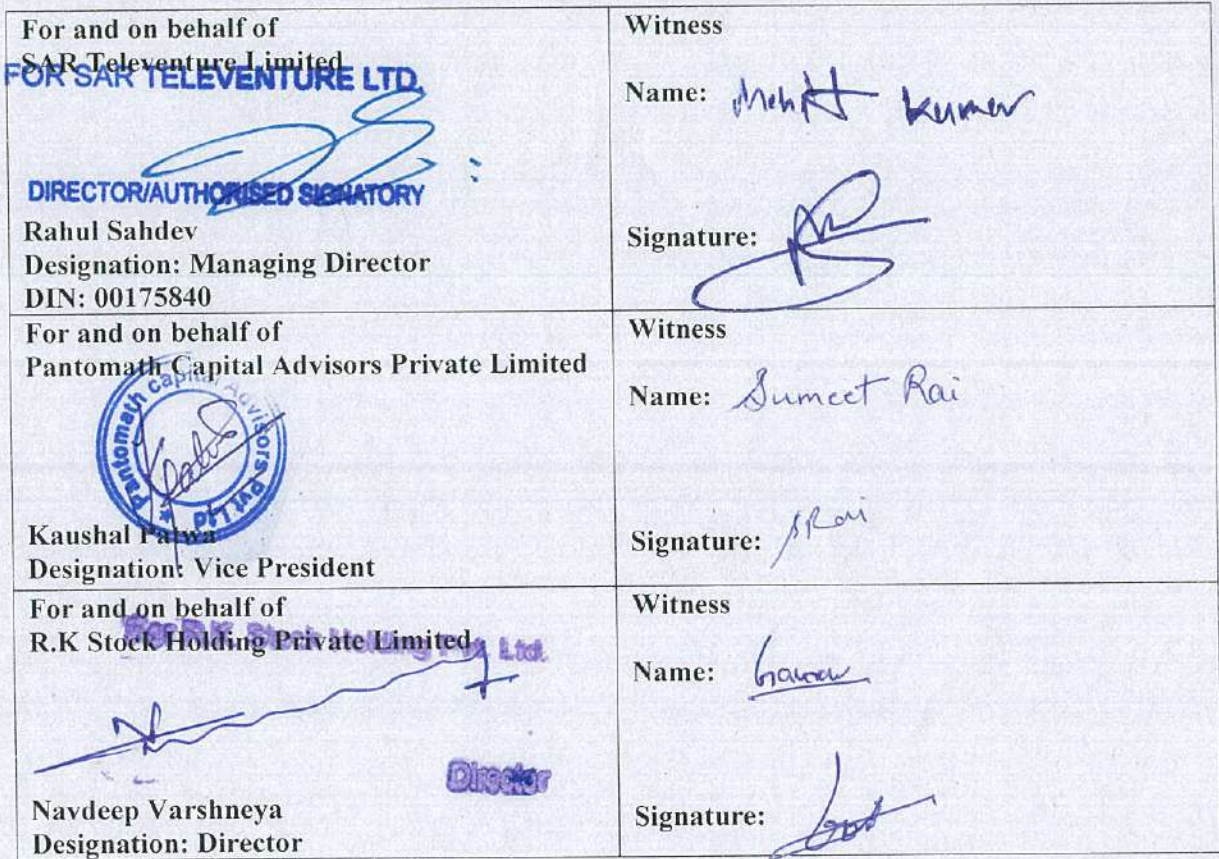 For and on behalf of
SAR Televenture Limited
FOR SAR TELEVENTURE LTD.
DIRECTOR/AUTHORISED SIGNATORY
Rahul Sahdev
Designation: Managing Director
DIN: 00175840
Witness
Name: Mohit Kumar
Signature:
For and on behalf of
Pantomath Capital Advisors Private Limited
Pantomath Capital Advisors Pvt Ltd
Kaushal Patwa
Designation: Vice President
Witness
Name: Sumeet Rai
Signature: SRai
For and on behalf of
R.K Stock Holding Private Limited
For R.K. Stock Holding Pvt. Ltd.
Director
Navdeep Varshneya
Designation: Director
Witness
Name: Gaurav
Signature: